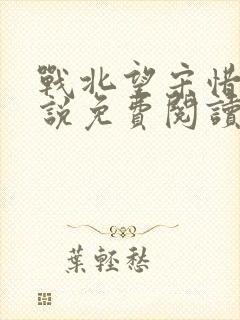 戰北望宋惜
說免費閱讀
葉輕愁